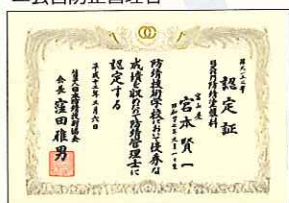 認定証
富山県
宮本賢一
防錆技術学校において優秀な
成績を収めたので防錆管理士に
認定する
平成十三年三月六日
社団法人日本防錆技術協会
会長 窪田雅男